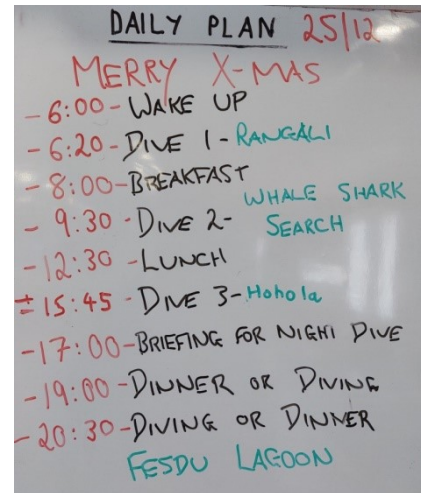 DAILY PLAN 25/12
MERRY X-MAS
-6:00-WAKE UP
-6:20-DIVE 1-RANGALI
-8:00-BREAKFAST
-9:30-DIVE 2-WHALE SHARK
SEARCH
-12:30-LUNCH
±15:45-DIVE 3-Hohola
-17:00-BRIEFING FOR NIGHT DIVE
-19:00-DINNER OR DIVING
-20:30-DIVING OR DINNER
FESDU LAGOON